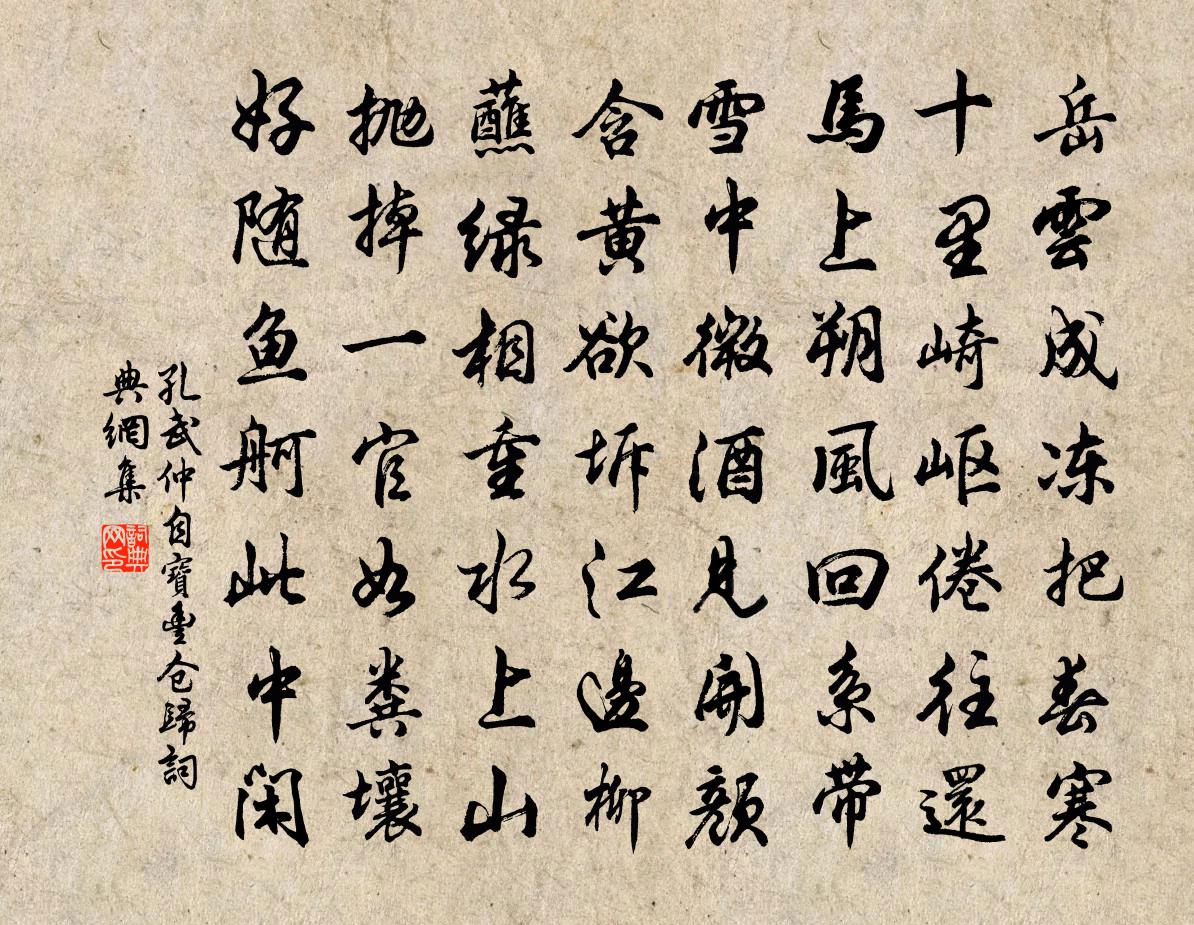 岳雲成冻把春寒
十里崎岖倦往還
馬上朔風回系带
雪中微酒見開顏
含黄欲坼江邊柳
蘸绿相重水上山
抛掉一官如粪壤
好随魚舸此中閑
孔武仲自寶豐仓歸詞
典網集
詞典
网印